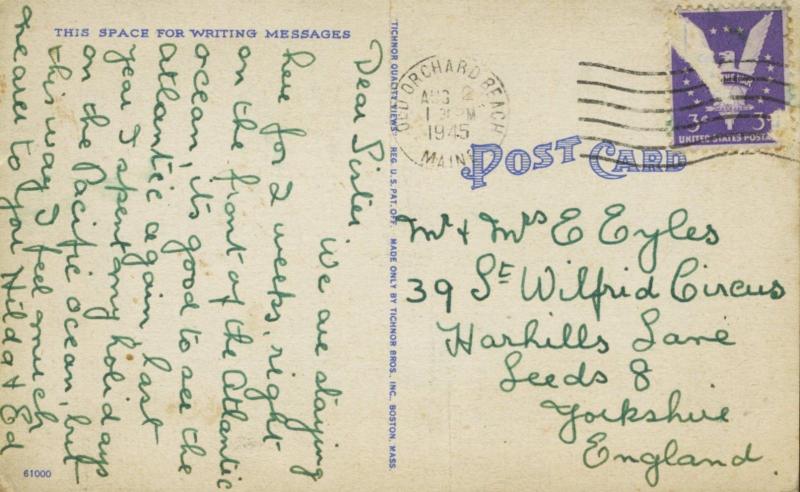 THIS SPACE FOR WRITING MESSAGES
Dear Sister
We are staying
here for 2 weeks, right
on the front of the Atlantic
ocean, its good to see the
atlantic again, last
year I spent my holidays
on the Pacific ocean, but
this way I feel much
nearer to you Hilda & Ed
61000
TICHNOR QUALITY VIEWS REG. U.S. PAT. OFF. MADE ONLY BY TICHNOR BROS. INC., BOSTON, MASS.
OLD ORCHARD BEACH
AUG 2
1945
MAINE
3¢ 3¢
UNITED STATES POSTAGE
POST CARD
Mr & Mrs E Eyles
39 St Wilfrid Circus
Harhills Lane
Leeds 8
Yorkshire
England.